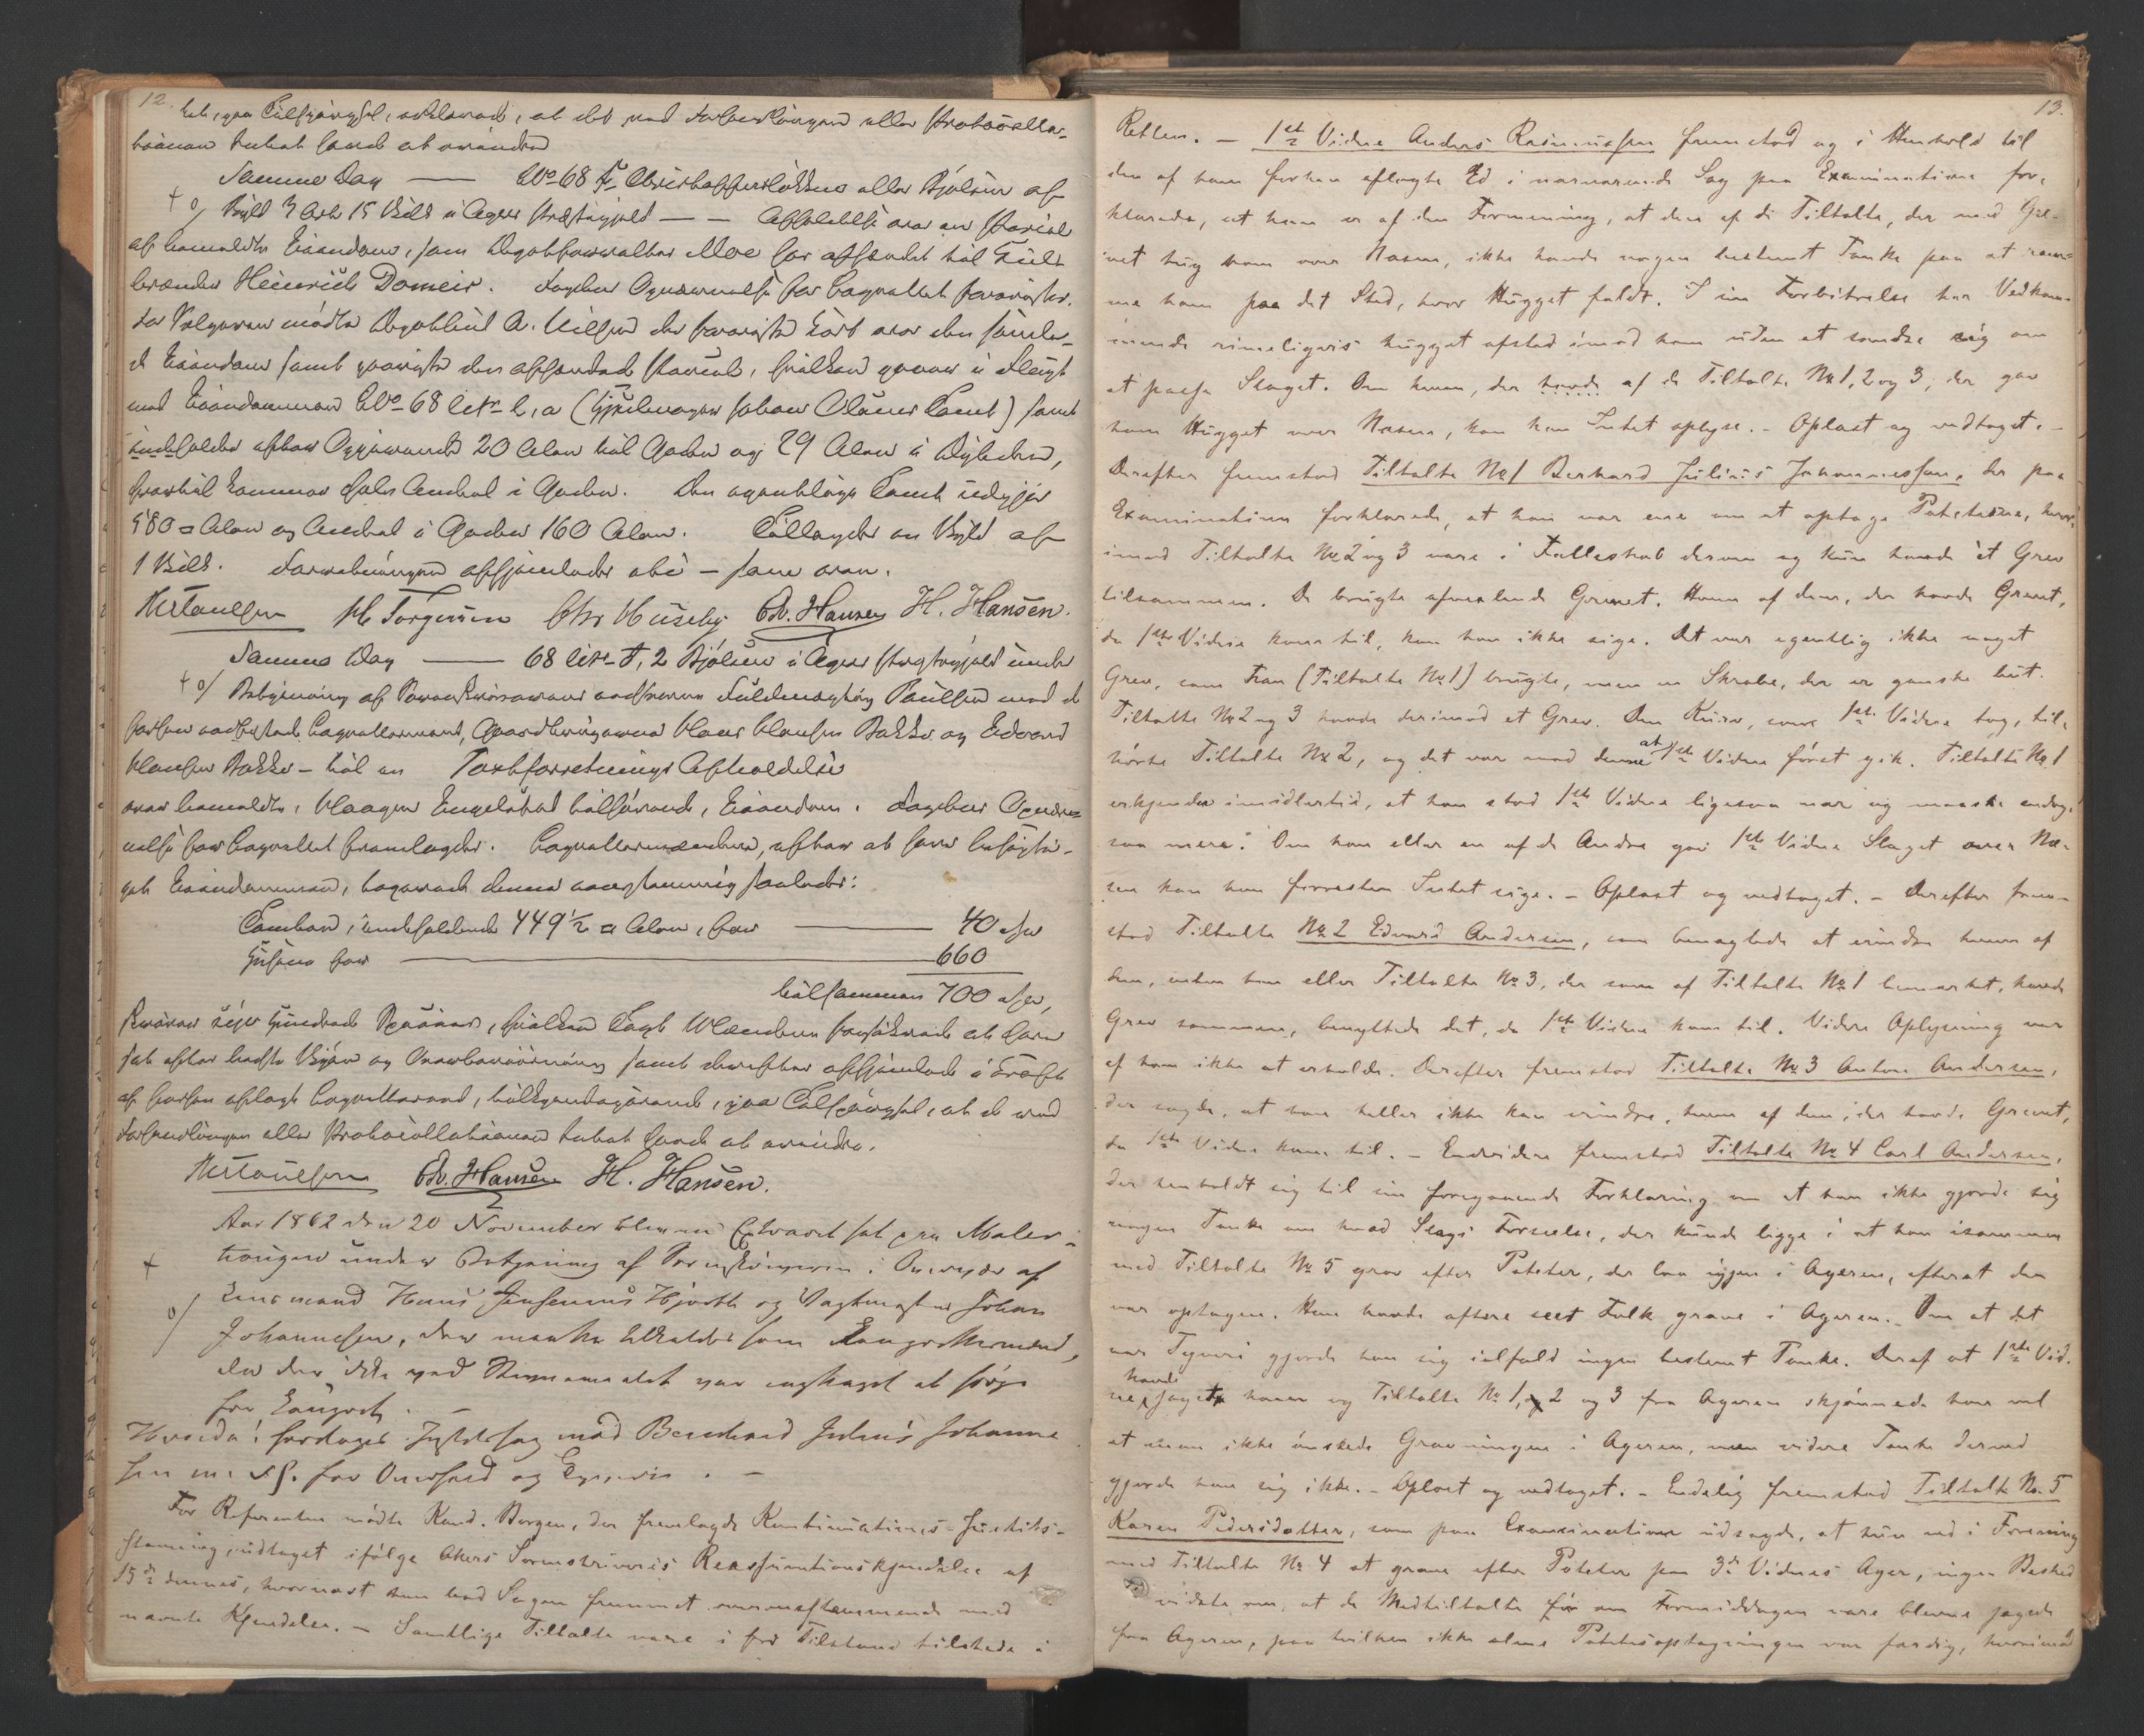 12.
tet, paa Tilspørgsel, erklærede, at de ved Forberedningen eller Protocolla-
tionen Intet havde at erindre
Samme Dag — No 68 Christopherløkken eller Bjølsen af
+ o/ Skyld 3 Ort 15 Skill i Agers Præstegjeld — — Afholdelse over en Parcel
af bemeldte Eiendom, som Vognforvalter Moe har afhændet til
brænder Heinrich Domeir. Lovlig Opnævnelse for Lagrettet foreviistes.
For Sælgeren mødte A. Nilsen der foreviste Kart over den samle-
de Eiendom samt paaviste den afhændede Parcel, hvilken grændser i
med Eiendommen No 68 litr. l, a (Hjulmager Johan Tomt) samt
indeholder efter Opgivende 20 Alen til Gaden og 29 Alen i Dybden,
hvortil kommer halv Andel i Gaden. Den egentlige Tomt udgjør
580 □ Alen og Andel i Gaden 160 Alen. Tillagdes en Skyld af
1 Skill. Forretningen afhjemledes etc — som oven.
M. Jørgensen Chr Huseby Ed. Hansen H. Hansen.
Samme Dag — 68 litr. F, 2 Bjølsen i Agers Præstegjeld under
+ o/ Betjening af Sorenskriverens Fuldmægtig Paulsen med de
forhen Lagrettesmænd, Gaardbrugerne Hans Hansen Bakke og Edvard
Hansen Bakke — til en Taxtforretnings Afholdelse
over bemeldte, Haagen Engelstad tilhørende, Eiendom. Lovlig Opnæv-
nelse for Lagrettet fremlagdes. Lagrettesmændene, efter at have besigti-
get Eiendommen, taxerede denne overeenstemmig saaledes:
Tomten, indeholdende 449½ □ Alen, for — 40 Spd
Husene for — 660
tilsammen 700 Spd,
skriver syv Hundrede Species, hvilken Taxt Mændene forsikrede at have
sat efter bedste Skjøn og Overbeviisning samt derefter afhjemlede i Kraft
af forhen aflagt Lagretteseed, tilkjendegivende, paa Tilspørgsel, at de ved
Forhandlingen eller Protocollationen Intet havde at erindre.
Ed. Hansen H. Hansen.
Aar 1862 den 20 November blev en Extraret sat paa Maler-
+ haugen under Betjening af Sorenskriveren i Overvær af
o/ Lensmand Hans Hjorth og Vagtmester Johan
Johannesen, der maatte tilkaldes som Laugrettesmænd,
da der ikke ved Stævnemaalet var anstaget at sørge
for Laugret. —
Hvorda: foretoges Justitssag mod Bernhard Julius Johanne-
sen m. fl. for Overfald og Tyveri. —
For Referenten mødte Kand. Borgen, der fremlagde Kontinuations-Justits-
stævning, udtaget ifølge Akers Sorenskriveris Reassumtionskjendelse af
15de dennes, hvornæst han bad Sagen fremmet overensstemmende med
nævnte Kjendelse. — Samtlige Tiltalte vare i fri Tilstand tilstede i
13.
Retten. — 1ste Vidne Anders Rasmussen fremstod og i Henhold til
den af ham forhen aflagte Ed i nærværende Sag paa Examination for-
klarede, at han er af den Formening, at den af de Tiltalte, der med Gre-
vet hug ham over Næsen, ikke havde nogen bestemt Tanke paa at ram-
me ham paa det Sted, hvor Hugget faldt. I sin Forbitrelse har Vedkom-
mende rimeligvis hugget afsted imod ham uden at sandse sig om
at passe Slaget. Om hvem, der havde af de Tiltalte No 1, 2 og 3, der gav
ham Hugget over Næsen, kan han Intet oplyse. — Oplæst og vedtaget. —
Derefter fremstod Tiltalte No 1 Bernhard Julius Johannessen, der paa
Examination forklarede, at han var ene om at optage Poteterne, hvor-
imod Tiltalte No 2 og 3 vare i Fællesskab derom og kun havde et Grev
tilsammen. De brugte afvexlende Grevet. Hvem af dem, der havde Grevet,
da 1ste Vidne kom til, kan han ikke sige. Det var egentlig ikke noget
Grev, som han (Tiltalte No 1) brugte, men en Skrabe, der er ganske but.
Tiltalte No 2 og 3 havde derimod et Grev. Den Kurv, som 1ste Vidne tog, til-
hørte Tiltalte No 2, og det var mod denne at 1ste Vidne først gik. Tiltalte No 1
erkjender imidlertid, at han stod 1ste Vidne ligesaa nær og maaske endog-
saa nærer. Om han eller en af de Andre gav 1ste Vidne Slaget over Næ-
sen kan han forresten Intet sige. — Oplæst og vedtaget. — Derefter frem-
stod Tiltalte No 2 Edvard Andersen, som benægtede at erindre hvem af
dem, enten han eller Tiltalte No 3, der som af Tiltalte No 1 bemærket, havde
Grev sammen, benyttede det, da 1ste Vidne kom til. Videre Oplysning var
af ham ikke at erholde. Derefter fremstod Tiltalte No 3 Anton Andersen,
der sagde, at han heller ikke kan erindre, hvem af dem, der havde Grevet,
da 1ste Vidne kom til. — Endvidere fremstod Tiltalte No 4 Carl Andersen,
der henholdt sig til sin foregaaende Forklaring om at han ikke gjorde sig
nogen Tanke om hvad Slags Forseelse, der kunde ligge i at han isammen
med Tiltalte No 5 grov efter Poteter, der laa igjen i Ageren, efterat den
var optagen. Han havde oftere seet Folk grave i Ageren. Om at det
var Tyveri gjorde han sig ialfald ingen bestemt Tanke. Deraf at 1ste Vid-
ne havde jaget ham og Tiltalte No 1, 2 og 3 fra Ageren skjønnede han vel
at man ikke ønskede Gravningen i Ageren, men videre Tanke derved
gjorde han sig ikke. — Oplæst og vedtaget. — Endelig fremstod Tiltalte No. 5
Karen Pedersdatter, som paa Examination udsagde, at hun ved i Forening
med Tiltalte No 4 at grave efter Poteter paa 3de Vidnes Ager, ingen Besked
vidste om, at de Medtiltalte før om Formiddagen vare blevne jagede
fra Ageren, paa hvilken ikke alene Potetesoptagningen var færdig, hvorimod